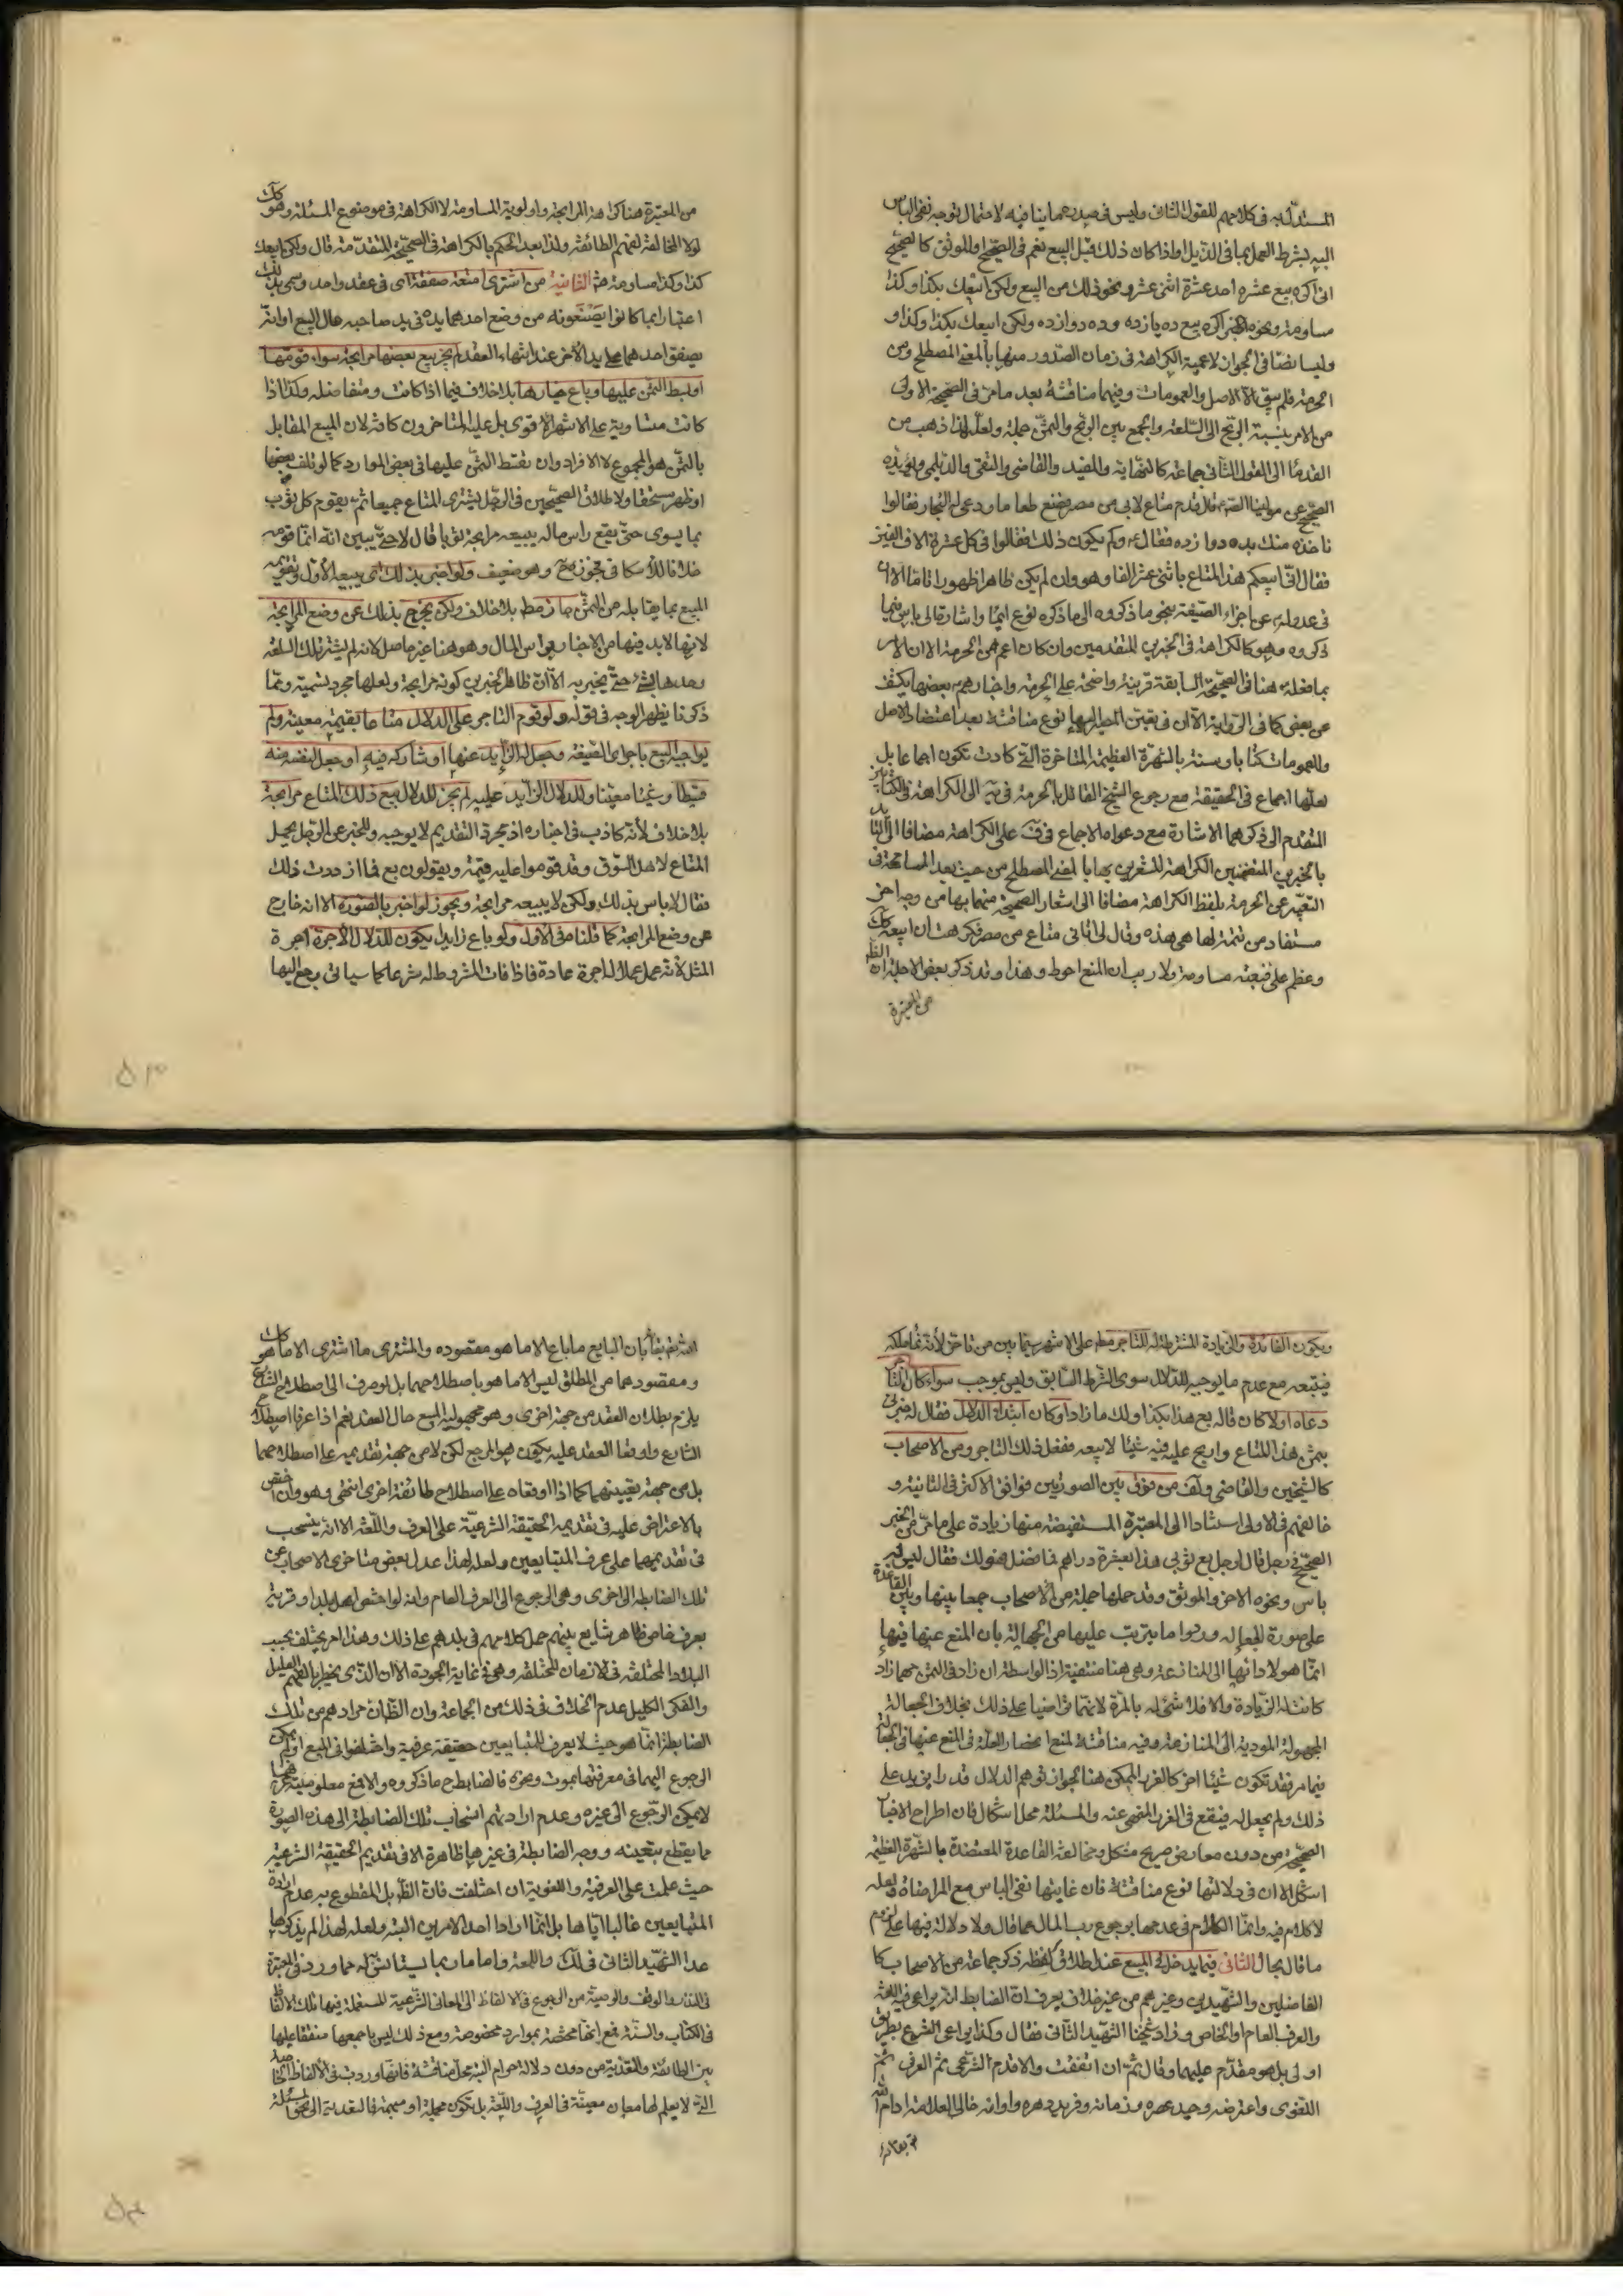 المستدل به فى كلامهم للقول الثانى وليس فى صدرهما ينافيه لاحتمال توجه نفى الباس
اليه بشرط العمل بما فى الذيل او اذا كان ذلك قبل البيع نعم فى الصحيح او الموثق كالصحيح
انى اكره بيع عشره احد عشرة اثنى عشر ونحو ذلك من البيع ولكن ابيعك بكذا وكذا
مساومة ونحوه الخبر اكره بيع ده يازده وده دوازده ولكن ابيعك بكذا وكذا و
وليسا نصا فى الجواز لاعمية الكراهة فى زمان الصدور منها بالمعنى المصطلح ومن
الحرمة فلم يبق الا الاصل والعمومات وفيهما مناقشة بعد ما مر فى الصحيحة الاولى
من الامر بنسبة الربح الى السلعة والجمع بين الربح والثمن جملة ولعله لذا ذهب من
القدماء الى القول الثانى جماعة كالنهاية والمفيد والقاضى والتقى والديلمى ويؤيده
الصحيح عن مولينا الصم قال قدم متاع لابى من مصر فصنع طعاما ودعى له التجار فقالوا
ناخذه منك بده دوازده فقال لهم وكم يكون ذلك فقالوا فى كل عشرة الاف الفين
فقال انى ابيعكم هذا المتاع باثنى عشر الفا وهو وان لم يكن ظاهرا ظهورا تاما الا ان
فى عدوله عن اجراء الصيغة بنحو ما ذكروه الى ما ذكره نوع ايماء واشارة الى باس فيما
ذكروه وهو كالكراهة فى الخبرين للمتقدمين وان كان اعم من الحرمة الا ان الامر
بما فعله هنا فى الصحيحة السابقة قرينة واضحة على الحرمة واخبارهم بعضها يكشف
عن بعض كما فى الرواية الا ان فى تعين المصير اليها نوع مناقشة بعد اعتضاد الاصل
والعمومات كتابا وسنة بالشهرة العظيمة المتاخرة التى كادت تكون اجماعا بل
لعلها اجماع فى الحقيقة مع رجوع الشيخ القائل بالحرمة فى يه الى الكراهة فى الكتابين
المتقدم الى ذكرهما الاشارة مع دعواه الاجماع فى ف على الكراهة مضافا الى التايد
بالخبرين المتضمنين الكراهة المشعرين بها بالمعنى المصطلح من حيث بعد المسامحة فى
التعبير عن الحرمة بلفظ الكراهة مضافا الى اشعار الصحيحة منهما بها من وجه اخر
مستفاد من تتمة لها هى هذه وقال لى اتانى متاع من مصر فكرهت ان ابيعه كك
وعظم على فبعته مساومة ولا ريب ان المنع احوط وهذا وقد ذكر بعض الاجلة ان الظ
من المعتبرة
من المعتبرة هنا كراهة المرابحة واولوية المساومة لا الكراهة فى موضوع المسئلة وهو كك
لولا المخالفة لفهم الطائفة ولذا بعد الحكم بالكراهة فى الصحيحة المتقدمة قال ولكن ابيعك
كذا وكذا مساومة الثانية من اشترى امتعة صفقة اى فى عقد واحد وسمى بذلك
اعتبارا بما كانوا يصنعونه من وضع احدهما يده فى يد صاحبه حال البيع او انه
يصفق احدهما على يد الاخر عند انتهاء العقد لم يجز بيع بعضها مرابحة سواء قومها
او بسط الثمن عليها وباع خيارها بلا خلاف فيما اذا كانت متفاضلة وكذا اذا
كانت متساوية على الاشهر الاقوى بل عليه المتاخرون كافة لان المبيع المقابل
بالثمن هو المجموع لا الافراد وان تقسط الثمن عليها فى بعض الموارد كما لو تلف بعضها
او ظهر مستحقا ولاطلاق الصحيحين فى الرجل يشترى المتاع جميعا ثم يقوم كل ثوب
بما يسوى حتى يقع راس ماله يبيعه مرابحة ثوبا قال لا حتى يبين انه انما قومه
خلافا للاسكافى فجوز وهو ضعيف ولو اخبر بذلك اى يبيعه الاول وتقويمه
المبيع بما يقابله من الثمن جاز مط بلا خلاف ولكن يخرج بذلك عن وضع المرابحة
لانها لا بد فيها من الاخبار براس المال وهو هنا غير حاصل لانه لم يشتر تلك السلعة
وحدها بشئ حتى يخبر به الا ان ظاهر الخبرين كونه مرابحة ولعلها مجرد تسمية ومما
ذكرنا يظهر الوجه فى قوله ولو قوم التاجر على الدلال متاعا بقيمة معينة ولم
يواجبه البيع باجراء الصيغة وجعل له الزايد عنها او شاركه فيه او جعل لنفسه منه
قسطا وعينا معينا وللدلال الزايد عليه لم يجز للدلال بيع ذلك المتاع مرابحة
بلا خلاف لانه كاذب فى اخباره اذ مجرد التقديم لا يوجبه وللخبر عن الرجل يحمل
المتاع لاهل السوق وقد قوموا عليه قيمة ويقولون بع فما ازددت فلك
فقال لا باس بذلك ولكن لا يبيعه مرابحة ويجوز لو اخبر بالصورة الا انه خارج
عن وضع المرابحة كما قلنا فى الاول ولو باع زايدا يكون للدلال الاجرة اجرة
المثل لانه عمل عملا له اجرة عادة فاذا فات المشروط له شرعا كما سياتى رجع اليها
ويكون الفائدة والزيادة المشترطة له للتاجر مط على الاشهر سيما بين من تاخر لانه نماء ملكه
فيتبعه مع عدم ما يوجبه للدلال سوى الشرط السابق وليس بموجب سواء كان التاجر
دعاه اولا كان قاله بع هذا بكذا ولك ما زاد او كان ابتداء الدلال فقال له خبرنى
بثمن هذا المتاع واربح عليه فيه شيئا لابيعه ففعل ذلك التاجر ومن الاصحاب
كالشيخين والقاضى من فرق بين الصورتين فوافق الاكثر فى الثانية و
خالفهم فى الاولى استنادا الى المعتبرة المستفيضة منها زيادة على ما مر من الخبر
الصحيح فى رجل قال لرجل بع ثوبى هذا بعشرة دراهم فما فضل فهو لك فقال ليس به
باس ونحوه الاخر والموثق وقد حملها جملة من الاصحاب جمعا بينها وبين القاعدة
على صورة الجعالة وردوا ما يترتب عليها من الجهالة بان المنع عنها فيها
انما هو لادائها الى المنازعة وهى هنا منتفية اذ الواسطة ان زاد فى الثمن مهما زاد
كانت له الزيادة والا فلا شئ له بالمرة لانهما تراضيا على ذلك بخلاف الجعالة
المجهولة المودية الى المنازعة وفيه مناقشة لمنع انحصار العلة فى المنع عنها فى الجعالة
فيما مر فقد تكون شيئا اخر كالغرر الممكن هنا لجواز توهم الدلال قدرا يزيد على
ذلك ولم يجعل له فيقع فى الغرر المنهى عنه والمسئلة محل اشكال فان اطراح الاخبار
الصحيحة من دون معارض صريح مشكل ومخالفة القاعدة المعتضدة بالشهرة العظيمة
اشكل الا ان فى دلالتها نوع مناقشة فان غايتها نفى الباس مع المراضاة ولعله
لا كلام فيه وانما الكلام فى عدمها برجوع رب المال عما قال ولا دلالة فيها على لزوم
ما قال بحال الثانى فيما يدخل فى المبيع عند اطلاق لفظه ذكر جماعة من الاصحاب كا
الفاضلين والشهيدين وغيرهم من غير خلاف يعرف ان الضابط انه يراعى فيه اللغة
والعرف العام او الخاص وزاد شيخنا الشهيد الثانى فقال وكذا يراعى الشرع بطريق
اولى بل هو مقدم عليهما وقال ثم ان اتفقت والا قدم الشرعى ثم العرفى ثم
اللغوى واعترضه وحيد عصره وزمانه وفريد دهره واوانه خالى العلامة ادام الله
الله ثم بقائه بان البايع ما باع الا ما هو مقصوده والمشترى ما اشترى الا ما هو كك
ومقصودهما من المطلق ليس الا ما هو باصطلاحهما بل لو صرف الى اصطلاح الشارع
يلزم بطلان العقد من جهة اخرى وهو مجهولية المبيع حال العقد نعم اذا عرفا اصطلاح
الشارع واوقعا العقد عليه يكون هو المرجع لكن لا من جهة تقديمه على اصطلاحهما
بل من جهة تعيينهما كما اذا اوقعاه على اصطلاح طائفة اخرى انتهى وهو وان اختص
بالاعتراض عليه فى تقديمه الحقيقة الشرعية على العرف واللغة الا انه ينسحب
فى تقديمهما على عرف المتبايعين ولعله لهذا عدل بعض متاخرى الاصحاب عن
تلك الضابطة الى اخرى وهى الرجوع الى العرف العام وانه لو اختص اهل بلد او قرية
بعرف خاص ظاهر شايع بينهم حمل كلامهم فى بلدهم على ذلك وهذا امر يختلف بحسب
البلاد المختلفة فى الازمان المختلفة وهى فى غاية الجودة الا ان الذى يخطر بالفهم العليل
والفكر الكليل عدم الخلاف فى ذلك من الجماعة وان الظ ان مرادهم من تلك
الضابطة انما هو حيث لا يعرف للمتبايعين حقيقة عرفية واختلفوا فى المبيع او لم يمكن
الرجوع اليهما فى معرفتها بموت ونحوه فالضابطح ما ذكروه والا فمع معلومية عرفهما
لا يمكن الرجوع الى غيره وعدم ارادتهم اصحاب تلك الضابطة الى هذه الصورة
ما يقطع بتعينه ووجه الضابطة فى غيرها ظاهرة الا فى تقديم الحقيقة الشرعية
حيث علمت على العرفية واللغوية ان اختلفت فان الظ بل المقطوع به عدم ارادة
المتبايعين غالبا اياها بل انما ارادا احد الامرين البتة ولعله لهذا لم يذكرها
عدا الشهيد الثانى فى لك واللمعة واما ما ربما يستانس له مما ورد فى المعتبرة
فى النذر والوقف والوصية من الرجوع فى الالفاظ الى المعانى الشرعية المستعملة فيها تلك الالفاظ
فى الكتاب والسنة فمع انها مختصة بموارد مخصوصة ومع ذلك ليس باجمعها متفقا عليها
بين الطائفة والتعدية من دون دلالة حرام البتة محل مناقشة فانها وردت فى الالفاظ الخاصة
التى لا يعلم لها معان معينة فى العرف واللغة بل تكون مجملة او مبهمة فالتعدية الى نحو المسئلة